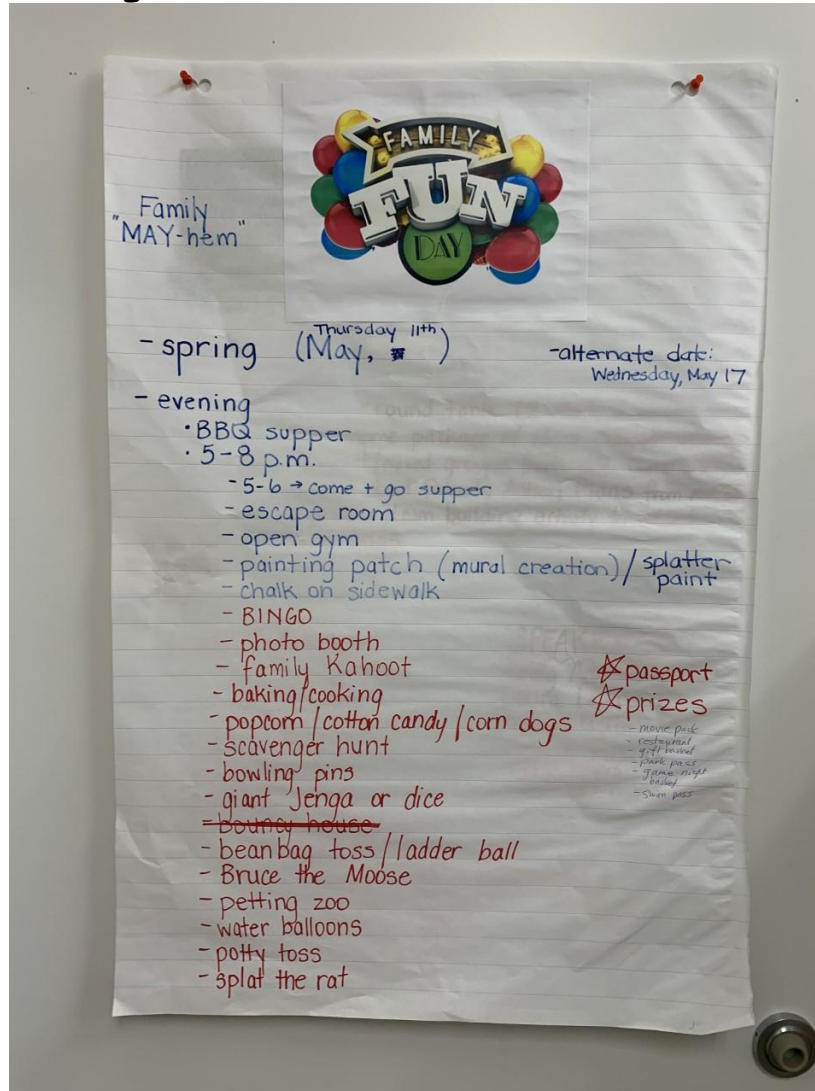 FAMILY
FUN
DAY
Family
"MAY-hem"
Thursday 11th
- spring (May, )
- alternate date:
Wednesday, May 17
- evening
• BBQ supper
• 5-8 p.m.
- 5-6 → come + go supper
- escape room
- open gym
- painting patch (mural creation) / splatter paint
- chalk on sidewalk
- BINGO
- photo booth
- family Kahoot
- baking/cooking
- popcorn / cotton candy / corn dogs
- scavenger hunt
- bowling pins
- giant Jenga or dice
- bouncy house
- bean bag toss / ladder ball
- Bruce the Moose
- petting zoo
- water balloons
- potty toss
- splat the rat
☆ passport
☆ prizes
- movie pack
- restaurant
- gift basket
- park pass
- game night
basket
- swim pass